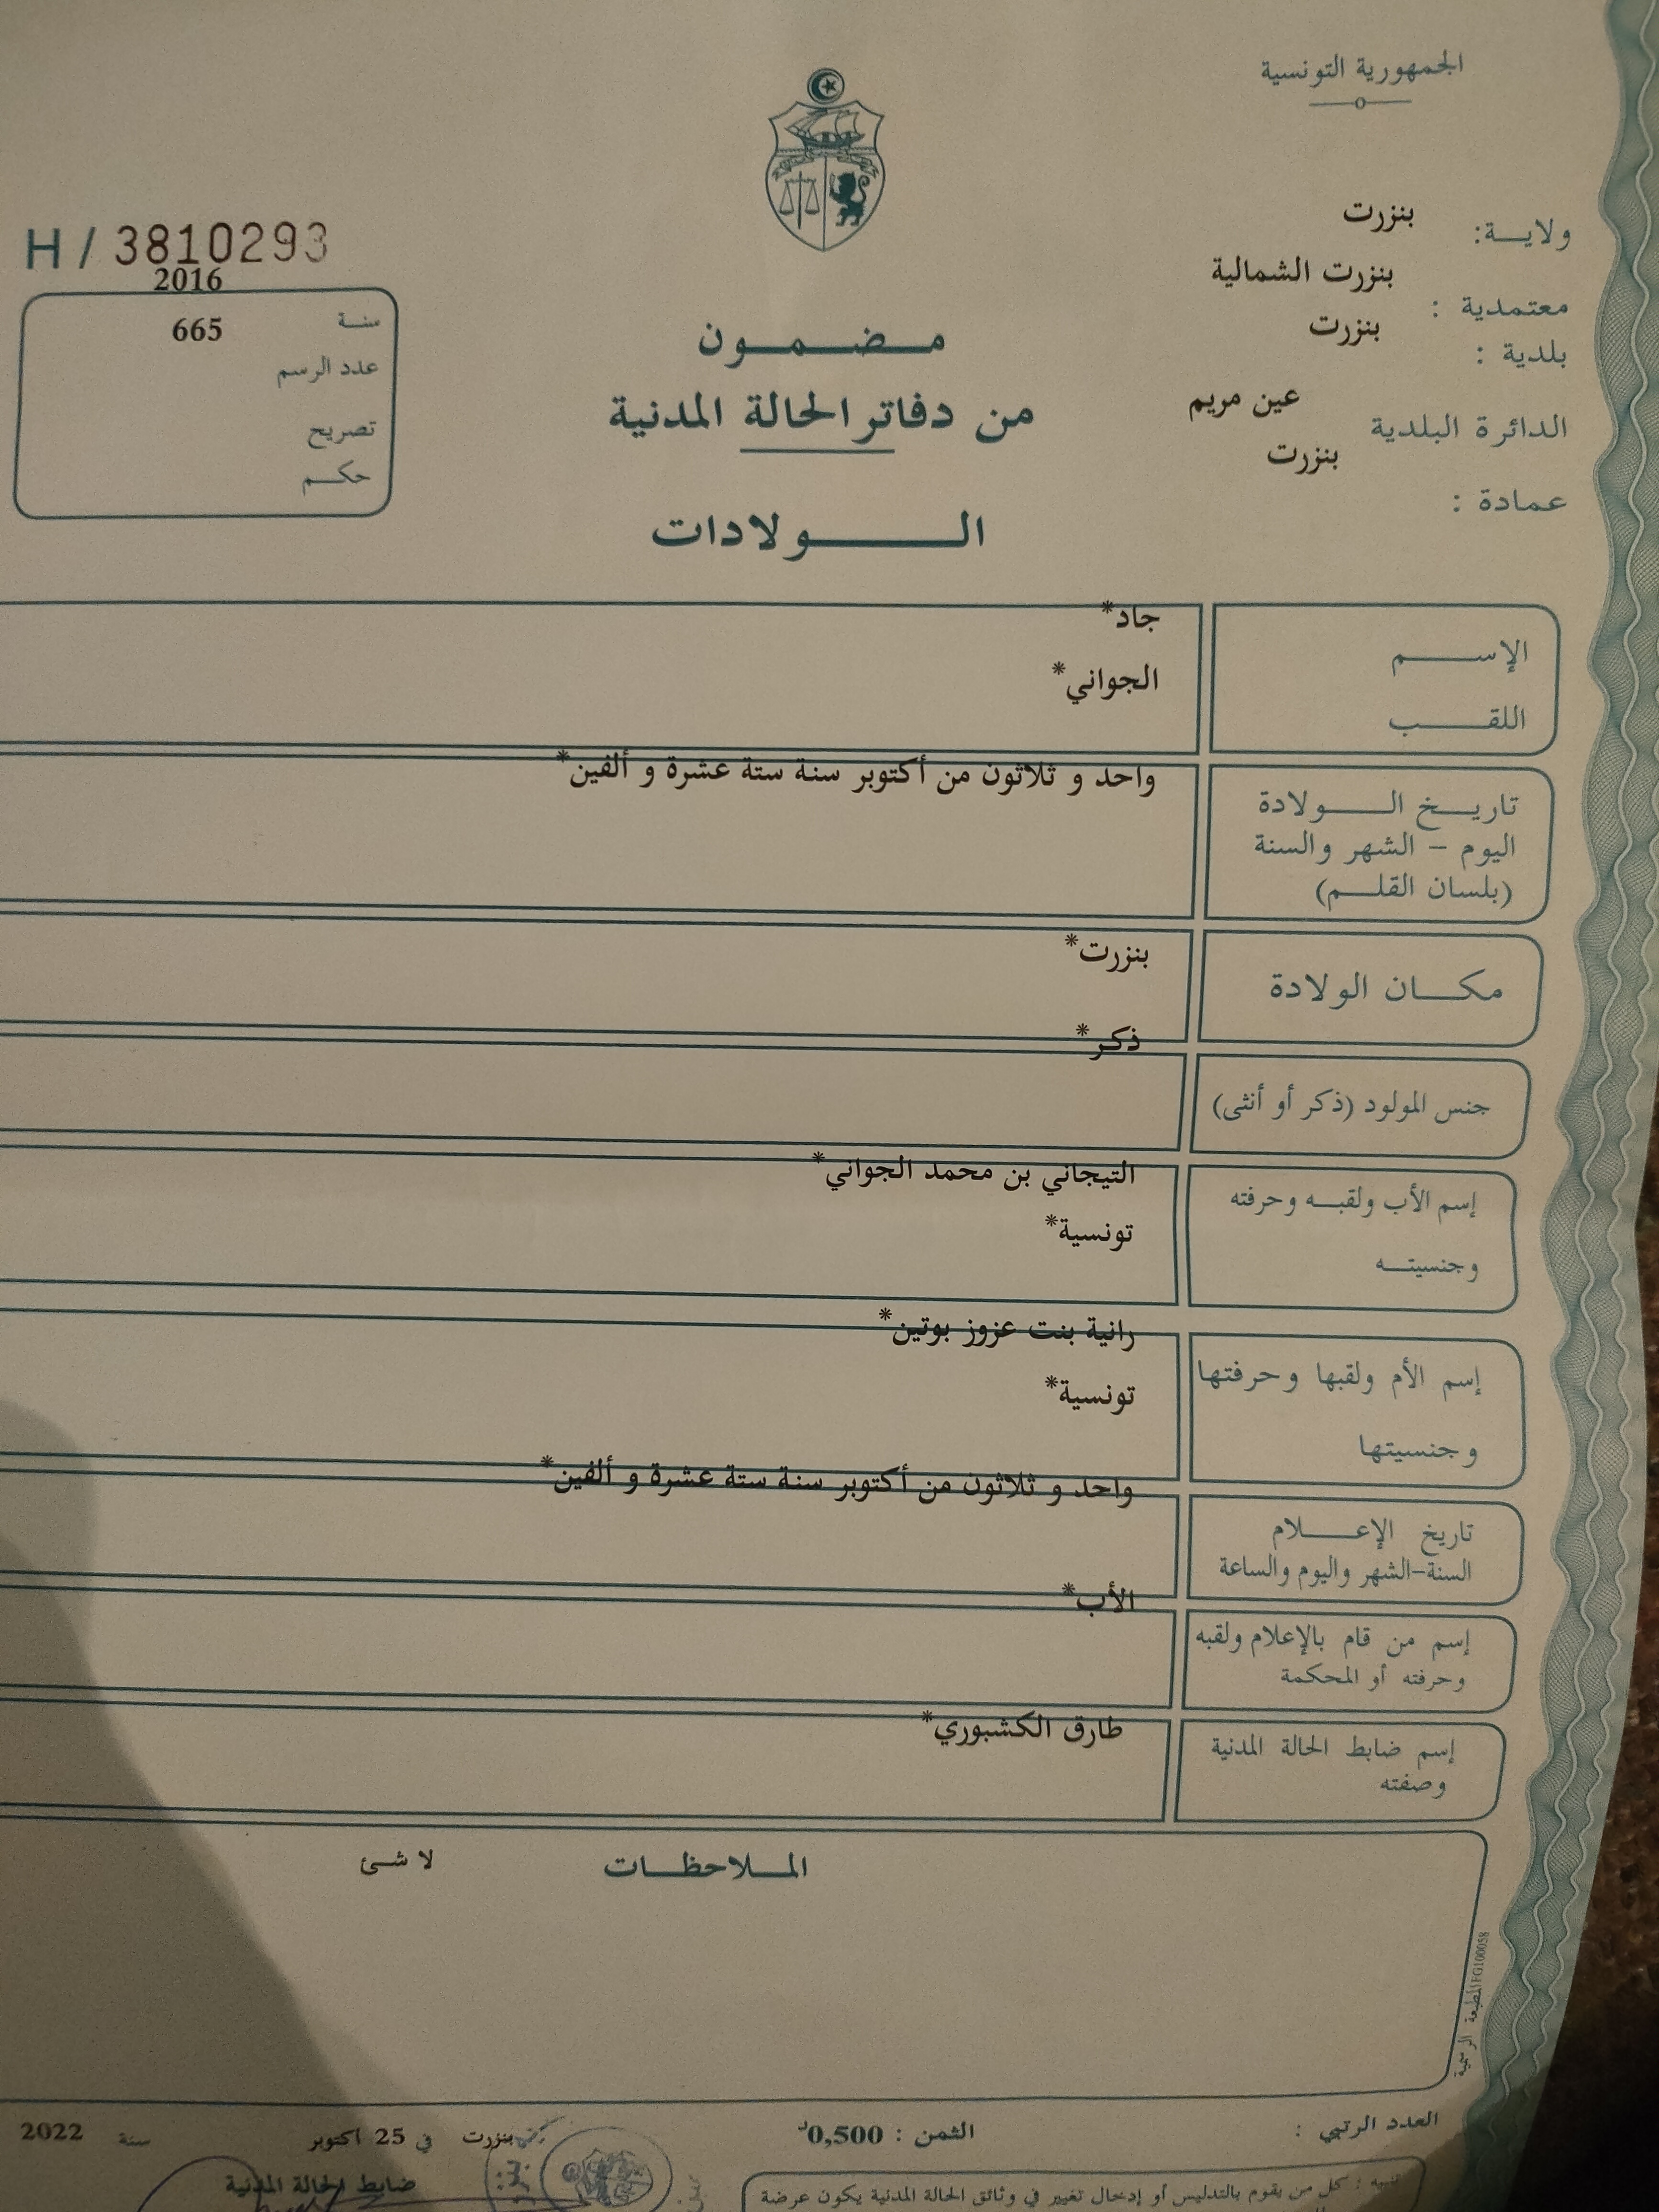 الجمهورية التونسية
ولايـــة: بنزرت
معتمدية : بنزرت الشمالية
بلدية : بنزرت
الدائرة البلدية عين مريم
عمادة : بنزرت
H / 3810293
2016
سنة 665
عدد الرسم
تصريح
حكم
مضمون
من دفاتر الحالة المدنية
الولادات
الإسم جاد*
اللقب الجواني*
تاريخ الولادة واحد و ثلاثون من أكتوبر سنة ستة عشرة و ألفين*
اليوم – الشهر والسنة
(بلسان القلم)
مكان الولادة بنزرت*
ذكر*
جنس المولود (ذكر أو أنثى)
إسم الأب ولقبه وحرفته التيجاني بن محمد الجواني*
وجنسيته تونسية*
رانية بنت عزوز بوتين*
إسم الأم ولقبها وحرفتها تونسية*
وجنسيتها
واحد و ثلاثون من أكتوبر سنة ستة عشرة و ألفين*
تاريخ الإعلام
السنة-الشهر واليوم والساعة
الأب*
إسم من قام بالإعلام ولقبه
وحرفته أو المحكمة
إسم ضابط الحالة المدنية طارق الكشبوري*
وصفته
الملاحظات لا شئ
المطبعة الرسمية FG100058
العدد الرتبي : الثمن : 0,500د بنزرت في 25 اكتوبر سنة 2022
ضابط الحالة المدنية
تنبيه : كل من يقوم بالتدليس أو إدخال تغيير في وثائق الحالة المدنية يكون عرضة